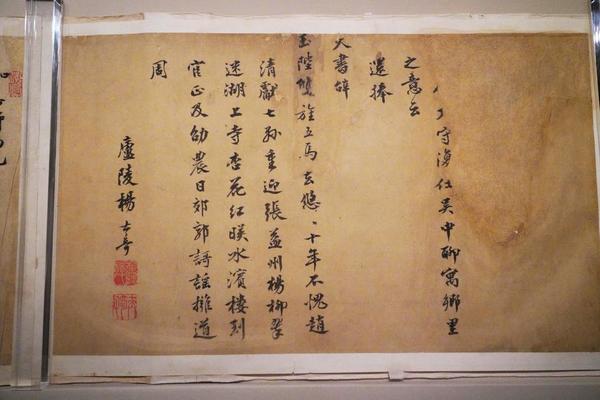 守 仕吴中聊寓鄉里
之意云
還捧
天書辭
玉陛雙旌五馬去悠〻十年不愧趙
清獻七郡重迎張益州楊柳翠
迷湖上寺杏花紅映水濱樓到
官正及劭農日郊郭謌謡擁道
周
廬陵楊士奇